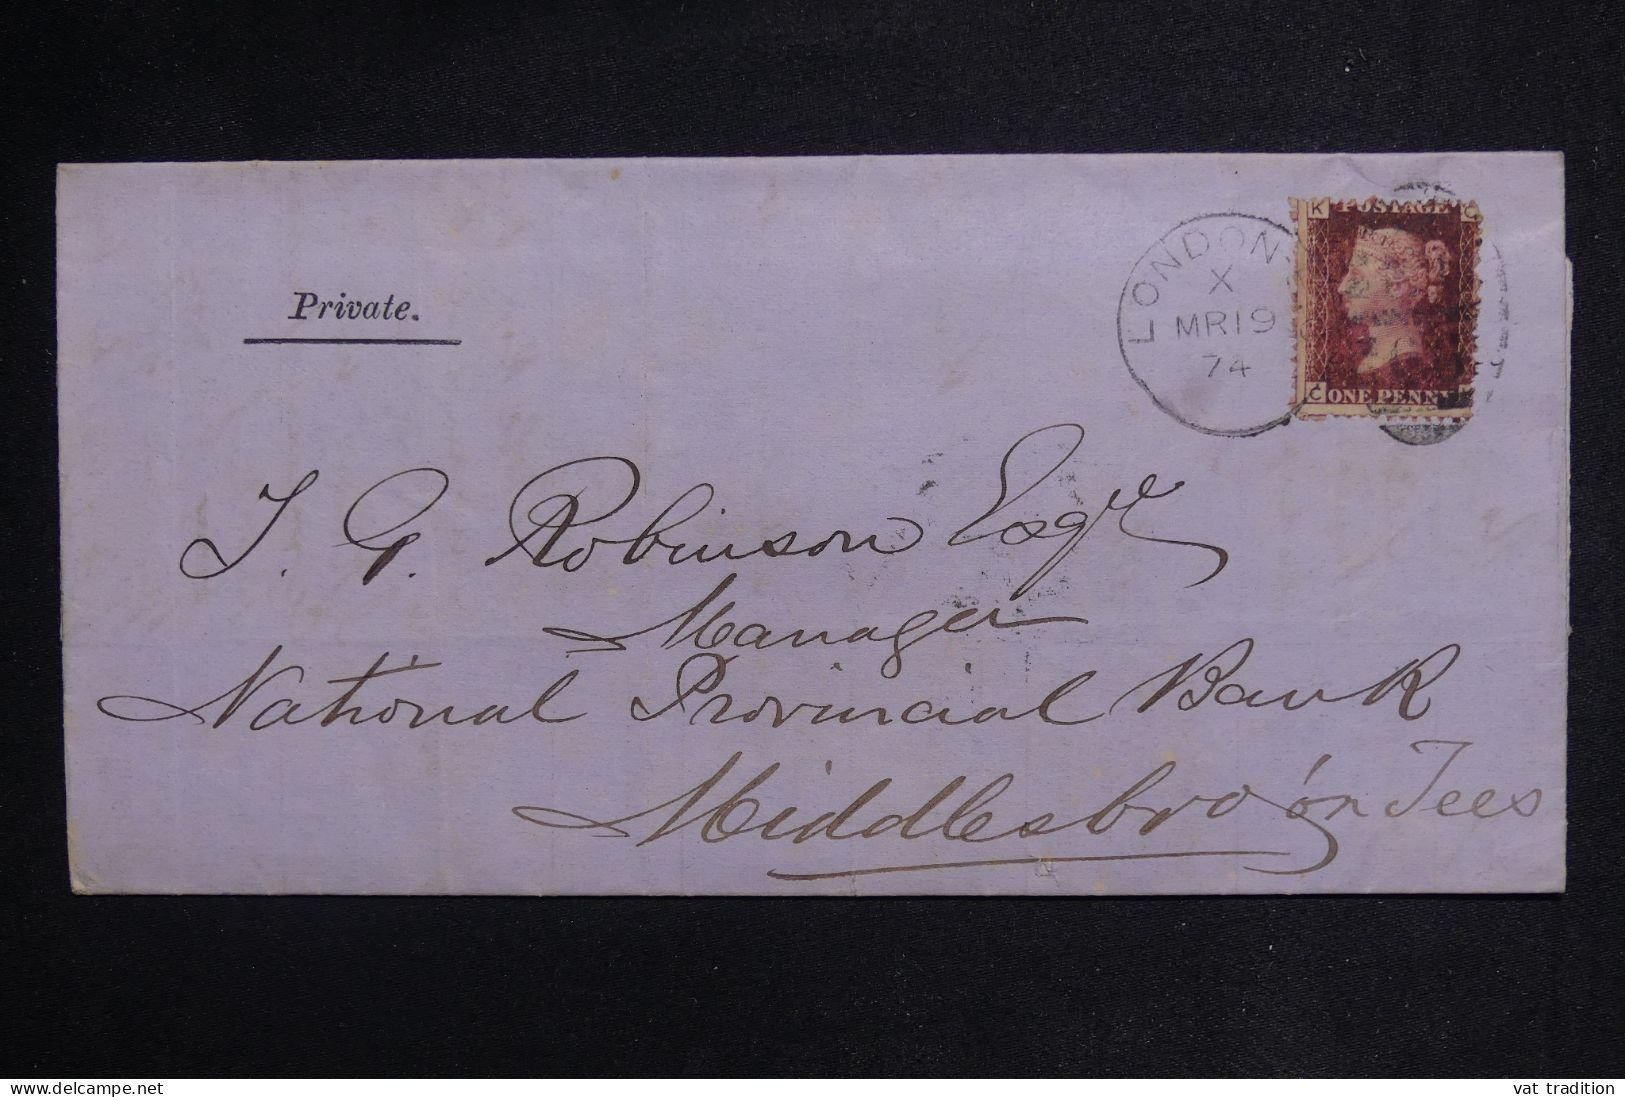 Private.
LONDON
X
MR 19
74
K POSTAGE C
C ONE PENNY K
J. G. Robinson Esqre
Manager
National Provincial Bank
Middlesbro' on Tees
www.delcampe.net
vat tradition